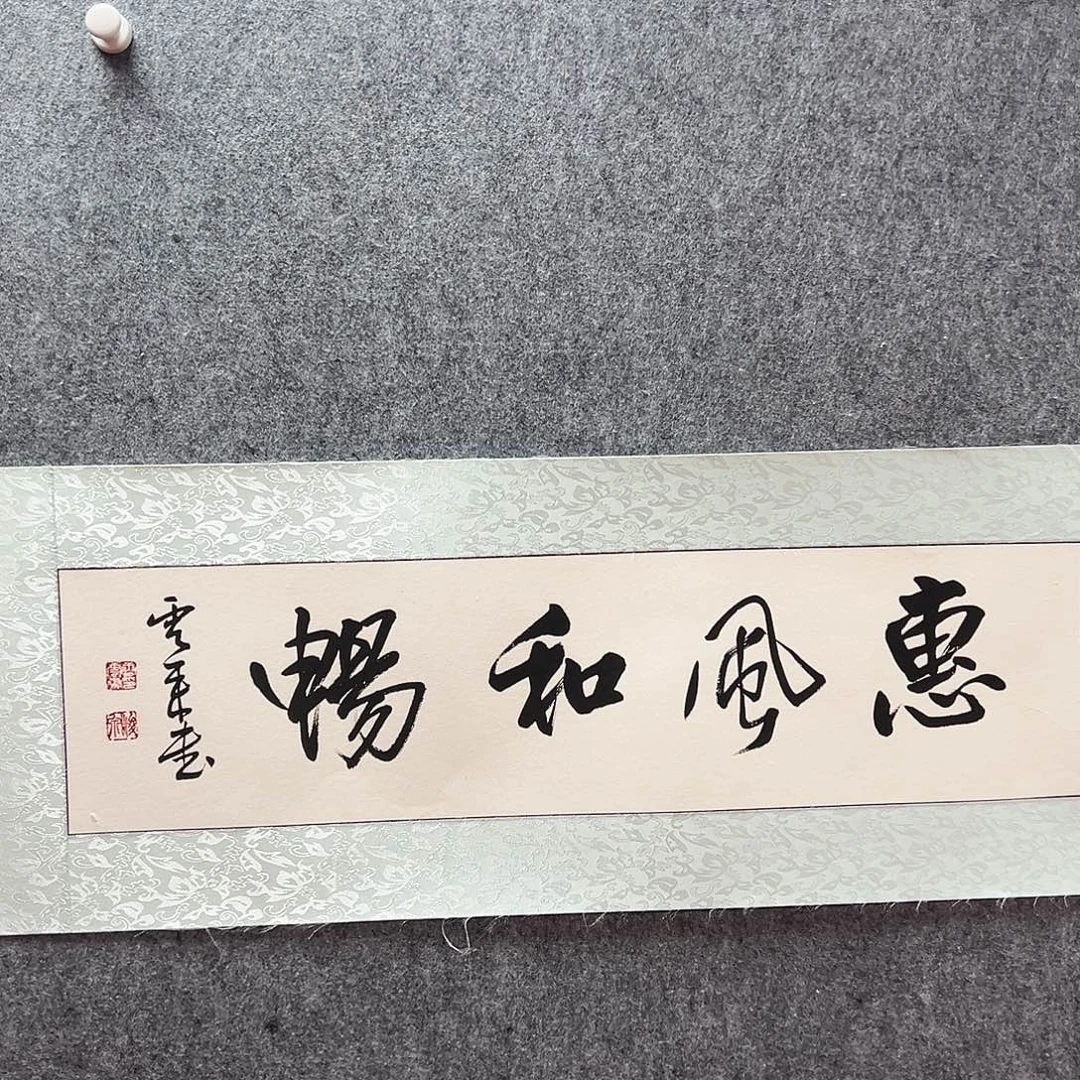 惠風和暢
雲平書